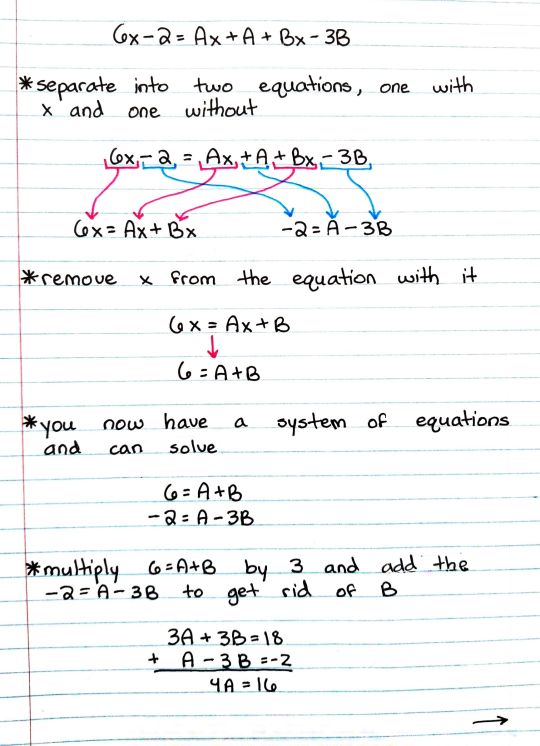 6x-2 = Ax + A + Bx - 3B
*separate into two equations, one with
x and one without
6x - 2 = Ax + A + Bx - 3B
6x = Ax + Bx -2 = A - 3B
*remove x from the equation with it
6x = Ax + B
6 = A + B
*you now have a system of equations
and can solve
6 = A + B
-2 = A - 3B
*multiply 6=A+B by 3 and add the
-2 = A - 3B to get rid of B
3A + 3B = 18
+ A - 3B = -2
4A = 16
→